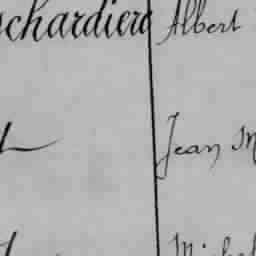 chardiere Albert
Jean M
Michel